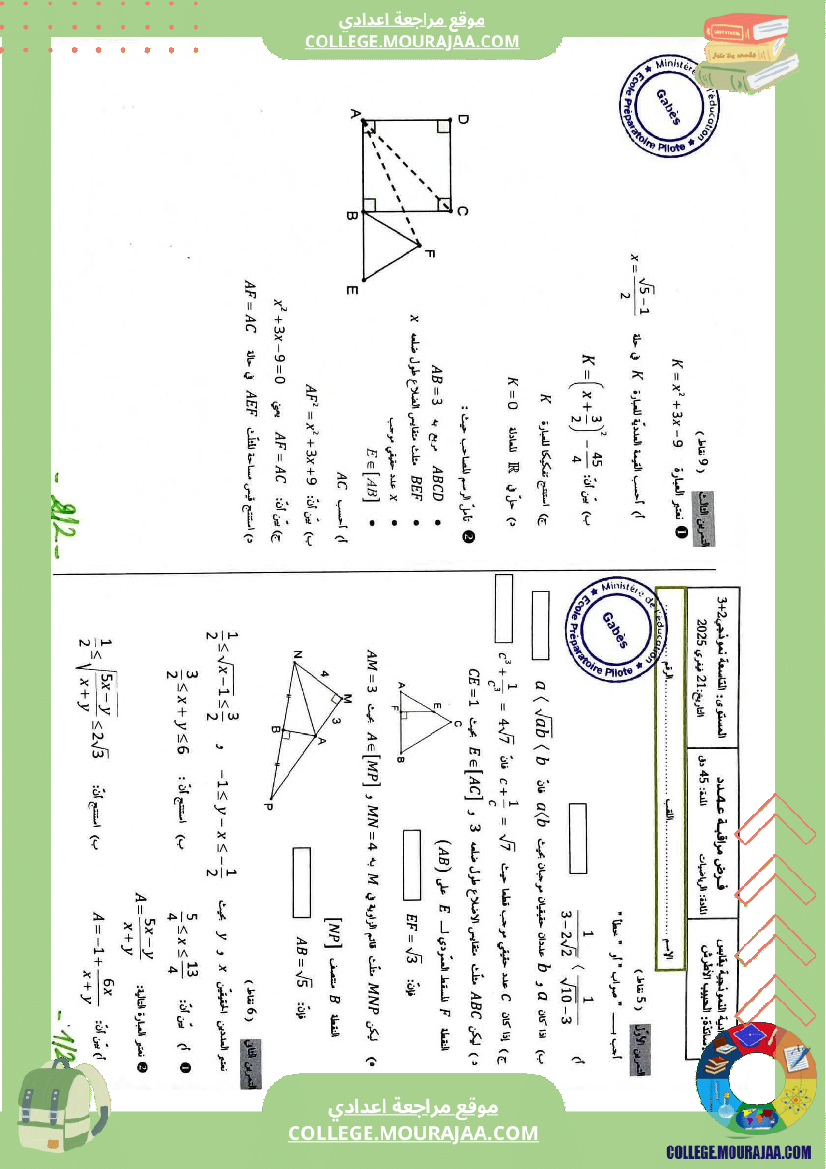 موقع مراجعة اعدادي
COLLEGE.MOURAJAA.COM
المستوى: التاسعة نموذجي2+3
التاريخ: 21 فيفري 2025
فرض مراقبة عـدد
المدة: 45 دق
المادة: الرياضيات
الاسم ............ اللقب ............ الرقم ......
Ministère de l'éducation
Gabès
Ecole Préparatoire Pilote
التمرين الأول ( 5 نقاط )
أجب بـ " صواب " أو " خطأ "
أ) 1/(3−2√2) ⟨ 1/(√10−3)
ب) اذا كان a و b عددان حقيقيان موجبان بحيث a⟨b فانّ a ⟨ √ab ⟨ b
ج) إذا كان C عدد حقيقي موجب قطعا حيث c + 1/c = √7 فانّ c³ + 1/c³ = 4√7
د) ليكن ABC مثلث متقايس الاضلاع طول ضلعه 3 و E∈[AC] بحيث CE=1
النقطة F المسقط العمودي لـ E على (AB)
فإنّ: EF=√3
C
E
A
F
B
ه) ليكن MNP مثلث قائم الزاوية في M به MN=4 و A∈[MP] بحيث AM=3
النقطة B منتصف [NP]
فإنّ: AB=√5
M
4
3
N
A
B
P
التمرين الثاني ( 6 نقاط )
نعتبر العددين الحقيقيّين x و y بحيث −1≤y−x≤−1/2 و 1/2≤√x−1≤3/2
❶ أ) بيّن أنّ: 5/4≤x≤13/4
ب) استنتج أنّ: 3/2≤x+y≤6
❷ نعتبر العبارة التالية: A=(5x−y)/(x+y)
أ) بيّن أنّ: A=−1+6x/(x+y)
ب) استنتج أنّ: 1/2≤√((5x−y)/(x+y))≤2√3
- 1/2
التمرين الثالث ( 9 نقاط )
❶ نعتبر العبارة K=x²+3x−9
أ) أحسب القيمة العددية للعبارة K في حالة x=(√5−1)/2
ب) بيّن أنّ: K=(x+3/2)²−45/4
ج) استنتج تفكيكا للعبارة K
د) حلّ في ℝ المعادلة K=0
❷ تأمل الرسم المصاحب حيث :
• ABCD مربع به AB=3
• BEF مثلث متقايس الضلاع طول ضلعه x
• x عدد حقيقي موجب
• E∈[AB)
أ) أحسب AC
ب) بيّن أنّ: AF²=x²+3x+9
ج) بيّن أنّ: AF=AC يعني x²+3x−9=0
د) استنتج قيس مساحة المثلث AEF في حالة AF=AC
D
C
A
B
F
E
- 2/2 -
Ministère de l'éducation
Gabès
Ecole Préparatoire Pilote
موقع مراجعة اعدادي
COLLEGE.MOURAJAA.COM
COLLEGE.MOURAJAA.COM